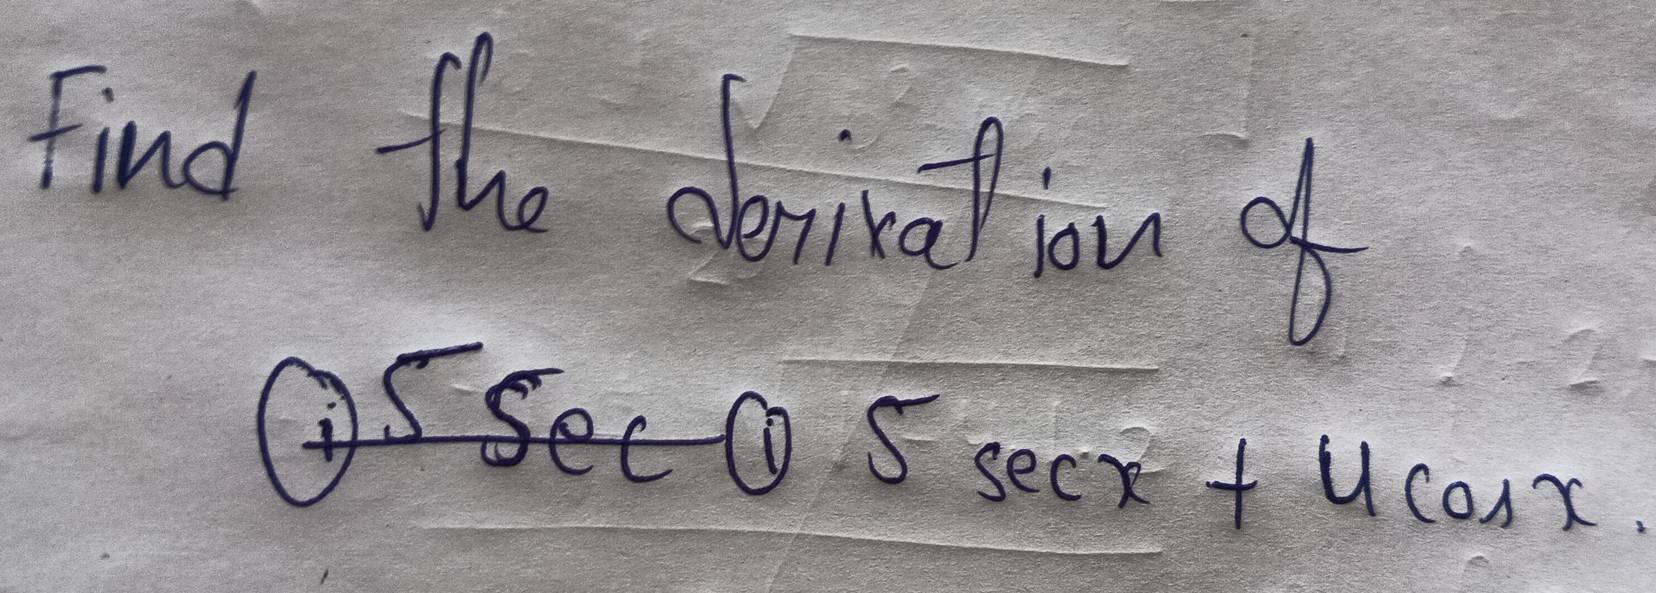 Find the derivation of
(i) 5 Sec (i) 5 sec x + 4 cos x.